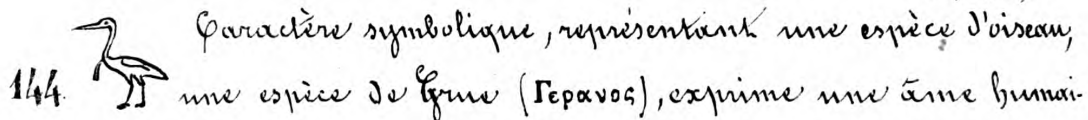 Caractère symbolique, représentant une espèce d'oiseau,
144. une espèce de Grue (Γερανος), exprime une âme humai-